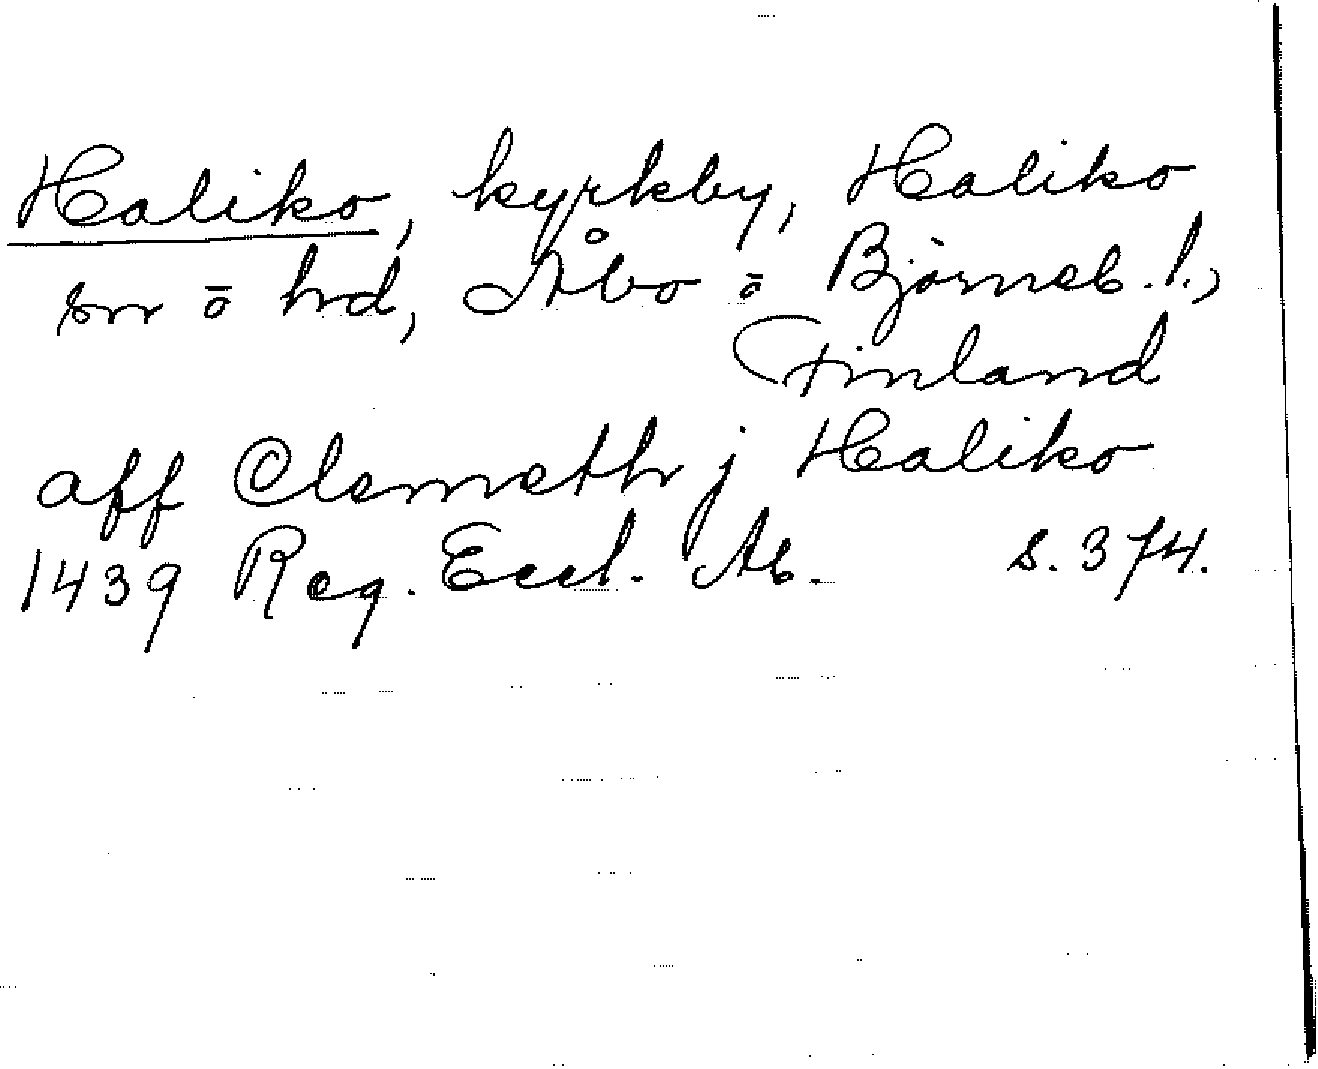 Haliko, kyrkby, Haliko
sn o hd, Åbo o Björneb. l.,
Finland
aff Clemeth j Haliko
1439 Reg. Eccl. Ab. s. 374.